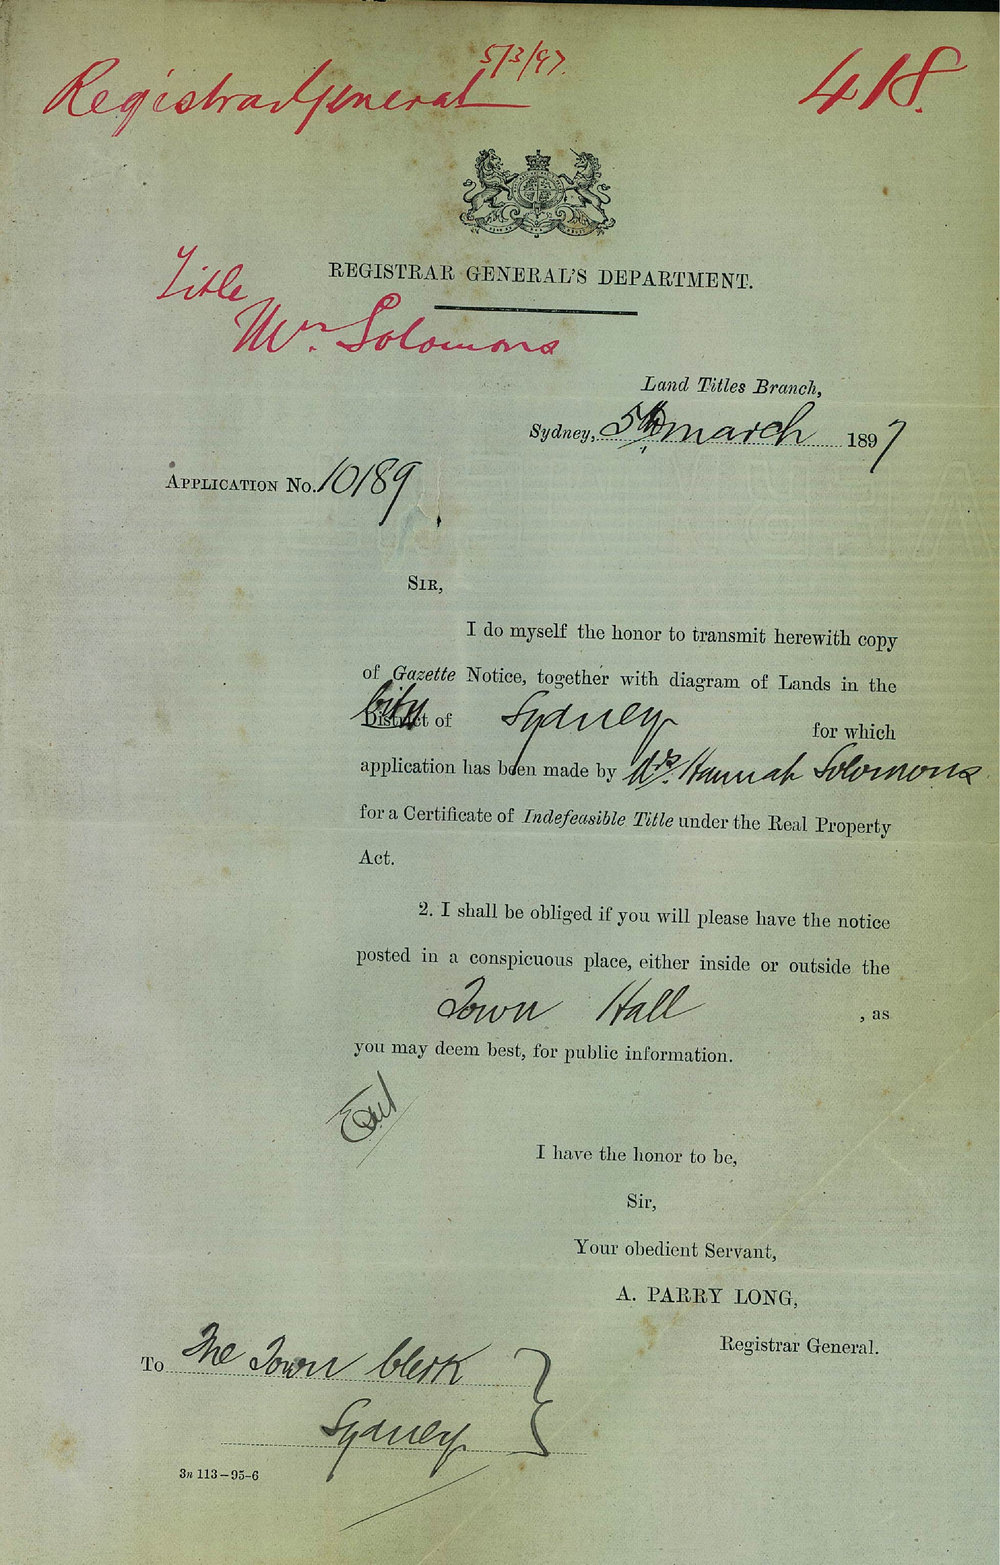 5/3/97.
Registrar General
418.
REGISTRAR GENERAL'S DEPARTMENT.
Title
Mrs. Solomons
Land Titles Branch,
Sydney, 5th March 1897
APPLICATION No. 10189
SIR,
I do myself the honor to transmit herewith copy
of Gazette Notice, together with diagram of Lands in the
City
District of Sydney for which
application has been made by Mrs. Hannah Solomons
for a Certificate of Indefeasible Title under the Real Property
Act.
2. I shall be obliged if you will please have the notice
posted in a conspicuous place, either inside or outside the
Town Hall , as
you may deem best, for public information.
I have the honor to be,
Sir,
Your obedient Servant,
A. PARRY LONG,
Registrar General.
To The Town Clerk
Sydney
3n 113-95-6